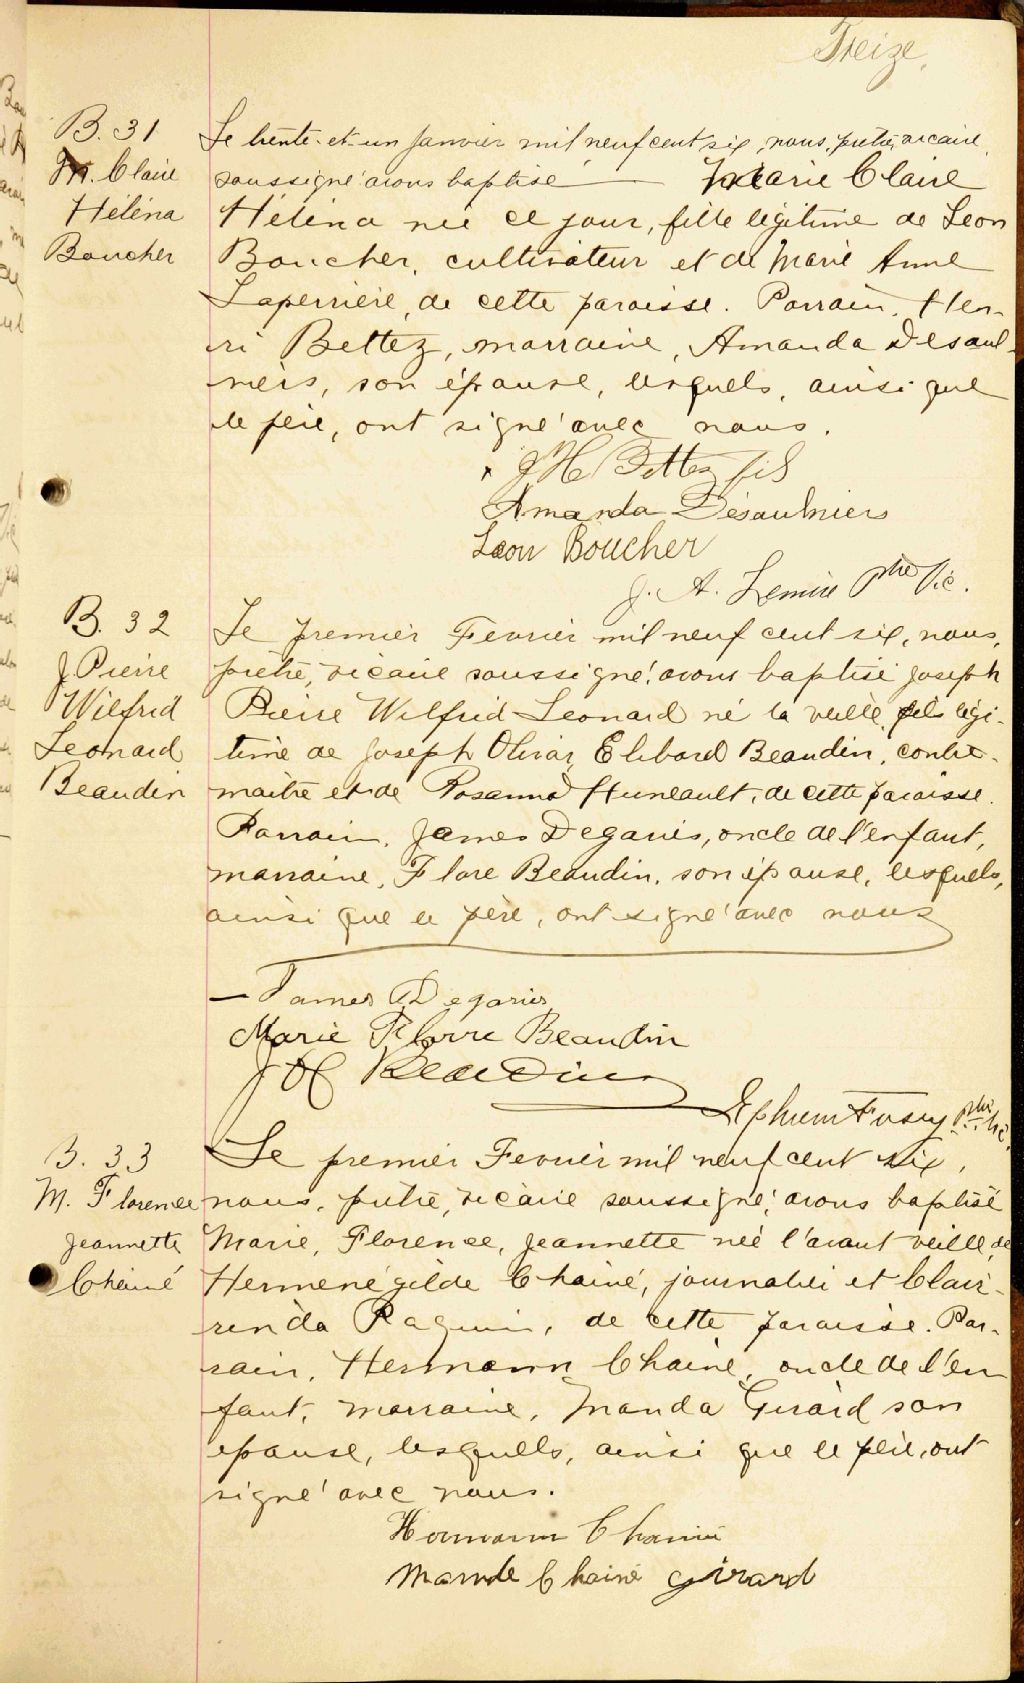 Treize.
B. 31
M. Claire
Héléna
Boucher
Le trente-et-un Janvier mil neuf cent six, nous, prêtre, vicaire,
soussigné avons baptisé Marie Claire
Héléna née ce jour, fille légitime de Léon
Boucher, cultivateur et de Marie Anne
Laperrière, de cette paroisse. Parrain, Hen-
ri Bettez, marraine, Amanda Desaul-
niers, son épouse, lesquels, ainsi que
le père, ont signé avec nous.
J H Bettez fils
Amanda Désaulniers
Léon Boucher
J. A. Lemire Ptre Vic.
B. 32
J. Pierre
Wilfrid
Leonard
Beaudin
Le premier Fevrier mil neuf cent six, nous,
prêtre, vicaire soussigné, avons baptisé Joseph
Pierre Wilfrid Leonard né la veille, fils légi-
time de Joseph Olivar Beaudin, contre-
maître et de Rosanna Huneault, de cette paroisse.
Parrain, James Degaries, oncle de l'enfant,
marraine, Flore Beaudin, son épouse, lesquels,
ainsi que le père, ont signé avec nous
James Degaries
Marie Florre Beaudin
J O E Beaudin
Ephrem ptre vic.
B. 33
M. Florence
Jeannette
Chainé
Le premier Fevrier mil neuf cent six,
nous, prêtre, vicaire soussigné, avons baptisé
Marie, Florence, Jeannette née l'avant veille, de
Hermenégilde Chainé, journalier et Clai-
rinda Paquin, de cette paroisse. Par-
rain, Hermann Chainé, oncle de l'en
fant, marraine, Manda Girard son
épouse, lesquels, ainsi que le père, ont
signé avec nous.
Hormann Chainé
Mamde Chainé Girard